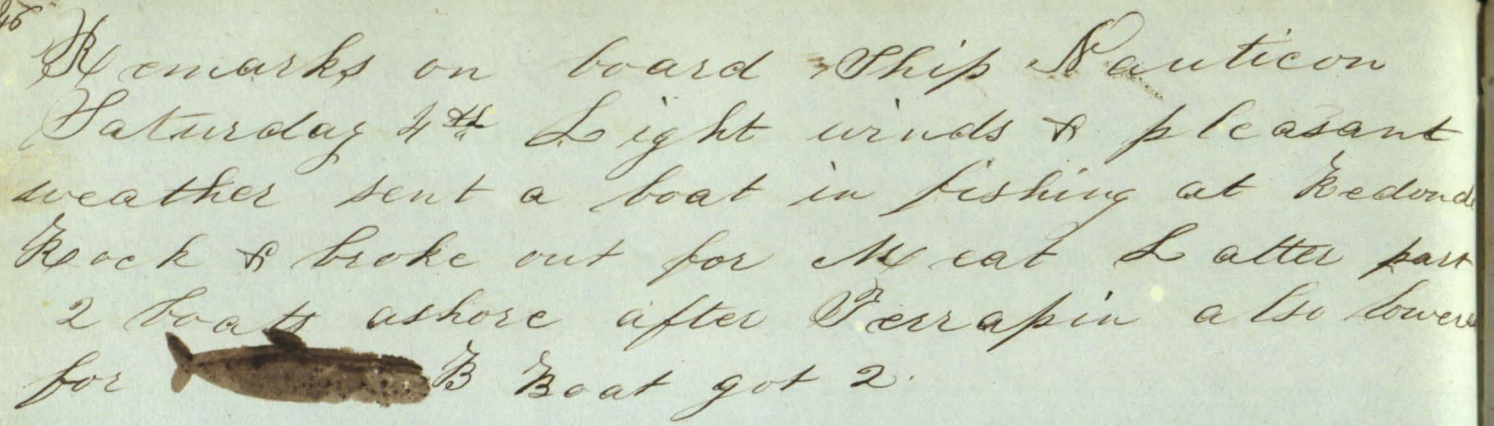 46
Remarks on board Ship Nauticon
Saturday 4th Light winds & pleasant
weather sent a boat in fishing at Redondo
Rock & broke out for Meat Latter part
2 boats ashore after Terrapin also lowered
for B Boat got 2.